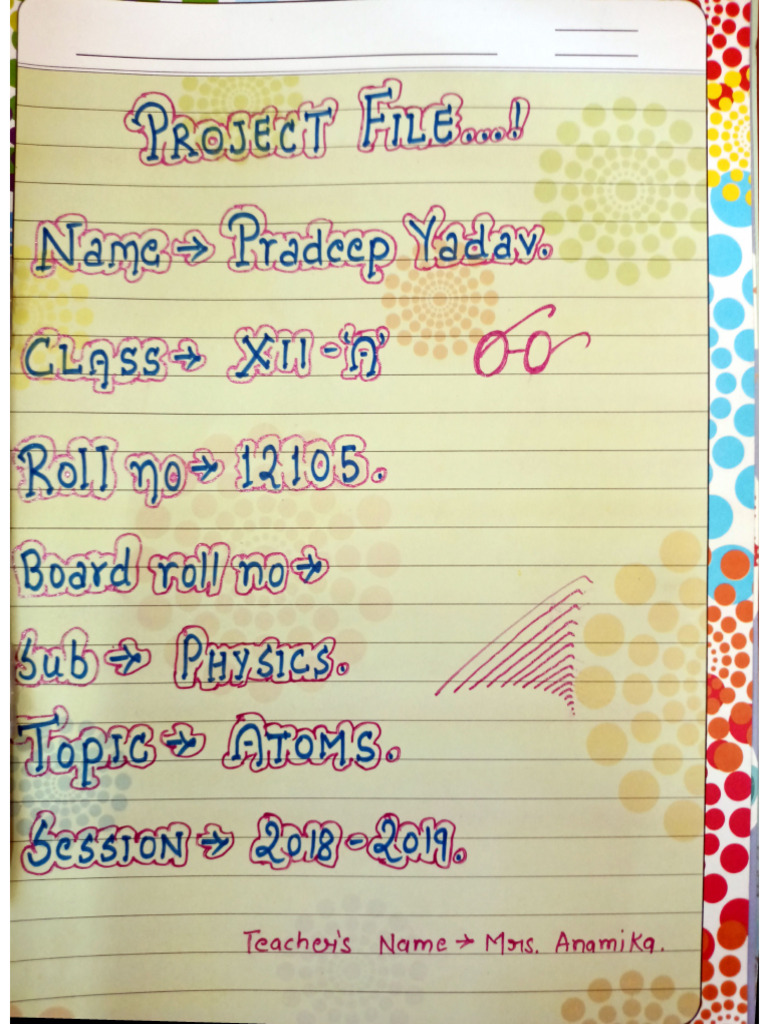 PROJECT FILE....!
Name → Pradeep Yadav.
CLASS → XII - 'A'
Roll no → 12105.
Board roll no →
Sub → PHYSICS.
TOPIC → ATOMS.
SESSION → 2018 - 2019.
Teacher's Name → Mrs. Anamika.